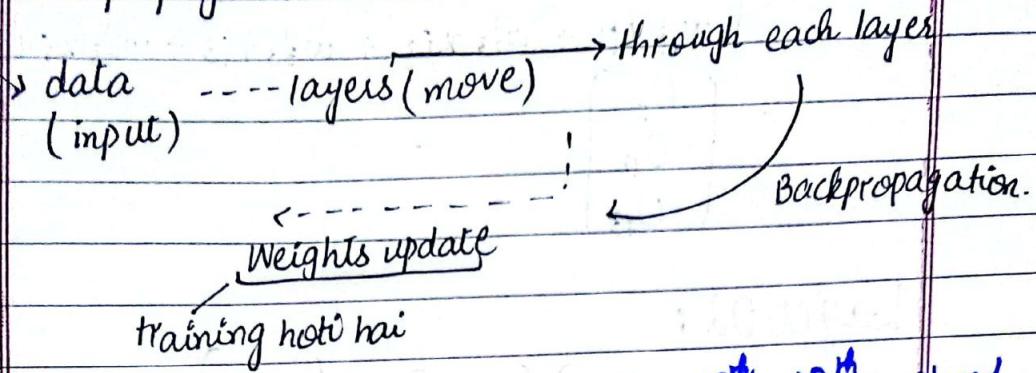 data ---- layers (move) → through each layer
(input)
Backpropagation.
Weights update
training hoti hai